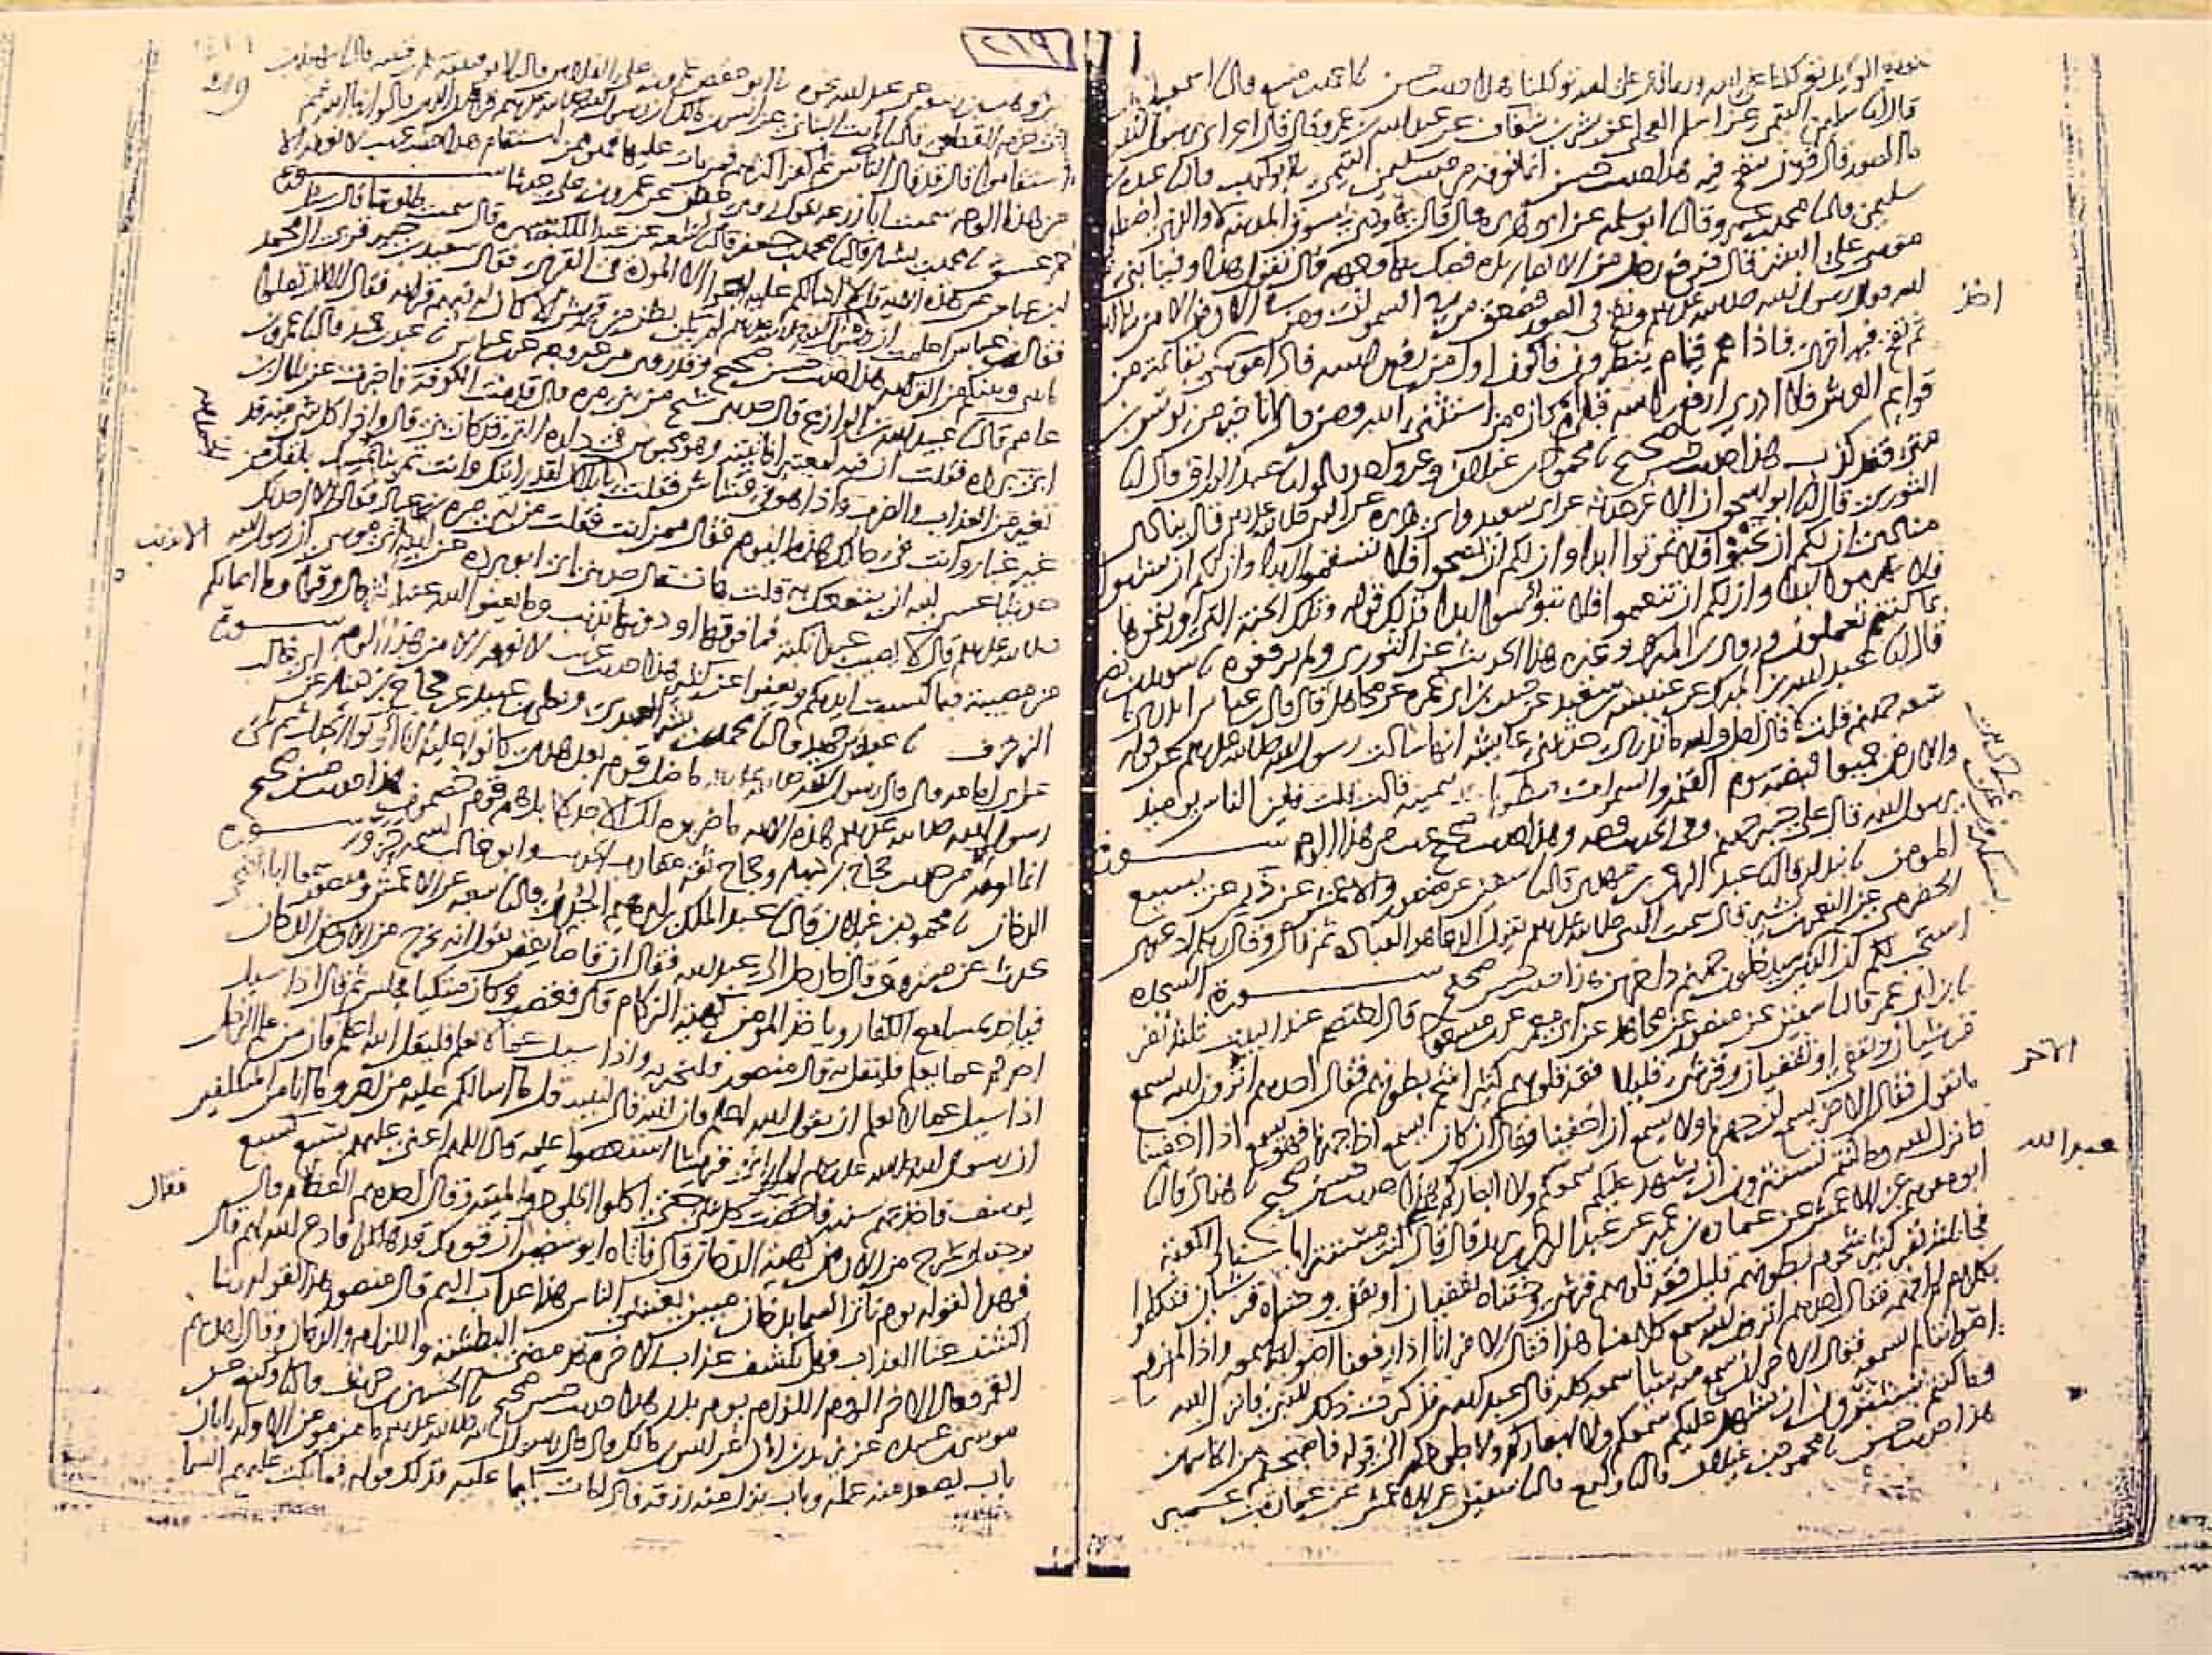 ونعم الوكيل توكلنا على الله وربما قال على الله توكلنا هذا حديث حسن نا احمد بن منيع قال نا اسمعيل
قال نا سليمن التيمي عن اسلم العجلي عن بشر بن شغاف عن عبد الله بن عمرو قال قال اعرابي يرسول الله
ما الصور قال قرن ينفخ فيه هذا حديث حسن انما نعرفه من حديث سليمن التيمي نا ابو كريب قال نا عبدة بن
سليمن قال نا محمد بن عمرو قال نا ابو سلمة عن ابي هريرة قال قال يهودي بسوق المدينة لا والذي اصطفى
موسى على البشر قال فرفع رجل من الانصار يده فصك بها وجهه قال تقول هذا وفينا نبي
الله فقال رسول الله صلى الله عليه وسلم ونفخ في الصور فصعق من في السموات ومن في الارض الا من شاء الله
ثم نفخ فيه اخرى فاذا هم قيام ينظرون فاكون اول من رفع راسه فاذا موسى اخذ بقائمة من
اخذ
قوايم العرش فلا ادري ارفع راسه قبلي ام كان ممن استثنى الله ومن قال انا خير من يونس بن
متى فقد كذب هذا حديث حسن صحيح نا محمود بن غيلان وغير واحد قالوا نا عبد الرزاق قال نا
الثوري قال نا ابو اسحق ان الاغر حدثه عن ابي سعيد وابي هريرة عن النبي صلى الله عليه وسلم قال ينادي
مناد ان لكم ان تحيوا فلا تموتوا ابدا وان لكم ان تصحوا فلا تسقموا ابدا وان لكم ان تشبوا
فلا تهرموا ابدا وان لكم ان تنعموا فلا تبؤسوا ابدا فذلك قوله وتلك الجنة التي اورثتموها
بما كنتم تعملون وروى ابن المبارك وغيره هذا الحديث عن الثوري ولم يرفعوه نا سويد بن نصر
قال نا عبد الله بن المبارك عن عنبسة بن سعيد عن حبيب بن ابي عمرة عن مجاهد قال قال ابن عباس اتدري ما
سعة جهنم قلت لا قال اجل والله ما تدري حدثتني عايشة انها سالت رسول الله صلى الله عليه وسلم عن قوله
والارض جميعا قبضته يوم القيمة والسموات مطويات بيمينه قالت قلت فاين الناس يومئذ
يرسول الله قال على جسر جهنم وفي الحديث قصة وهذا حديث صحيح غريب من هذا الوجه سورة
المومن نا بندار قال نا عبد الرحمن بن مهدي قال نا سفين عن منصور والاعمش عن ذر عن يسيع
الحضرمي عن النعمن بن بشير قال سمعت النبي صلى الله عليه وسلم يقول الدعا هو العبادة ثم قال وقال ربكم ادعوني
استجب لكم ان الذين يستكبرون عن عبادتي سيدخلون جهنم داخرين هذا حديث حسن صحيح سورة السجدة
نا ابن ابي عمر قال نا سفين عن منصور عن مجاهد عن ابي معمر عن ابن مسعود قال اختصم عند البيت ثلثة نفر
قرشيان وثقفي او ثقفيان وقرشي قليلا فقه قلوبهم كثيرا شحم بطونهم فقال احدهم اترون الله يسمع
الاخر
ما نقول فقال الاخر يسمع ان جهرنا ولا يسمع ان اخفينا وقال ان كان يسمع اذا جهرنا فهو يسمع اذا اخفينا
فانزل الله وما كنتم تستترون ان يشهد عليكم سمعكم ولا ابصاركم هذا حديث حسن صحيح نا هناد قال نا
عبد الله
ابو معوية عن الاعمش عن عمارة بن عمير عن عبد الرحمن بن يزيد قال قال كنت مستترا باستار الكعبة
فجا ثلثة نفر كثير شحوم بطونهم قليل فقه قلوبهم قرشي وختناه ثقفيان او ثقفي وختناه قرشيان فتكلموا
بكلام لم افهمه فقال احدهم اترون الله يسمع كلامنا هذا فقال الاخر انا اذا رفعنا اصواتنا سمعه واذا لم نرفع
اصواتنا لم يسمعه فقال الاخر ان سمع منه شيا سمعه كله قال عبد الله فذكرت ذلك للنبي فانزل الله
وما كنتم تستترون ان يشهد عليكم سمعكم ولا ابصاركم ولا جلودكم الى قوله فاصبحتم من الخاسرين
هذا حديث حسن نا محمود بن غيلان قال نا وكيع قال نا سفين عن الاعمش عن عمارة بن عمير
٢١٩
219
عن وهب بن ربيعة عن عبد الله نحوه نا ابو حفص عمرو بن علي الفلاس قال نا ابو قتيبة سلم بن قتيبة قال نا سهيل بن
ابي حزم القطعي قال نا ثابت البناني عن انس بن مالك ان رسول الله صلى الله عليه وسلم قرا ان الذين قالوا ربنا الله ثم
استقاموا قال قد قال الناس ثم كفر اكثرهم فمن مات عليها فهو ممن استقام هذا حديث غريب لا نعرفه الا
من هذا الوجه سمعت ابا زرعة يقول روى عفان عن عمرو بن علي حديثا سورة
حم عسق نا محمد بن بشار قال نا محمد بن جعفر قال نا شعبة عن عبد الملك بن ميسرة قال سمعت طاوسا قال سئل
ابن عباس عن هذه الاية قل لا اسالكم عليه اجرا الا المودة في القربى فقال سعيد بن جبير قربى ال محمد
فقال ابن عباس اعلمت ان رسول الله صلى الله عليه وسلم لم يكن بطن من قريش الا كان له فيهم قرابة فقال الا ان تصلوا
ما بيني وبينكم من القرابة هذا حديث حسن صحيح وقد روي من غير وجه عن ابن عباس نا عبد بن حميد قال نا عمرو بن
عاصم قال نا عبيد الله بن الوازع قال حدثني شيخ من بني مرة قال قدمت الكوفة فاخبرت عن بلال بن
ابي بردة فقلت ان فيه لمعتبرا فاتيته وهو محبوس في داره التي قد كان بنى قال واذا كل شي منه قد
تغير من العذاب والضرب واذا هو في قشاش فقلت الحمد لله يا بلال لقد رايتك وانت تمر بنا تمسك بانفك من
غير غبار وانت في حالك هذه اليوم فقال ممن انت فقلت من بني مرة بن عباد فقال الا احدثك
حديثا عسى الله ان ينفعك به قلت هات قال حدثني ابي ابو بردة عن ابيه ابي موسى ان رسول الله
صلى الله عليه وسلم قال لا يصيب عبدا نكبة فما فوقها او دونها الا بذنب وما يعفو الله عنه اكثر قال وقرا وما اصابكم
الا بذنب
من مصيبة فبما كسبت ايديكم ويعفوا عن كثير هذا حديث غريب لا نعرفه الا من هذا الوجه سورة
الزخرف نا عبد بن حميد قال نا محمد بن بشر العبدي ويعلى بن عبيد عن حجاج بن دينار عن ابي غالب
عن ابي امامة قال قال رسول الله صلى الله عليه وسلم ما ضل قوم بعد هدى كانوا عليه الا اوتوا الجدل ثم تلى
رسول الله صلى الله عليه وسلم هذه الاية ما ضربوه لك الا جدلا بل هم قوم خصمون هذا حديث حسن صحيح
انما نعرفه من حديث حجاج بن دينار وحجاج ثقة مقارب الحديث وابو غالب اسمه حزور سورة
الدخان نا محمود بن غيلان قال نا عبد الملك بن ابرهيم الجدي قال نا شعبة عن الاعمش ومنصور سمعا ابا الضحى
يحدث عن مسروق قال جا رجل الى عبد الله فقال ان قاصا يقص يقول انه يخرج من الارض الدخان
فياخذ بمسامع الكفار وياخذ المومن كهيئة الزكام قال فغضب وكان متكيا فجلس ثم قال اذا سيل
احدكم عما يعلم فليقل به قال منصور فليخبر به واذا سيل عما لا يعلم فليقل الله اعلم فان من علم الرجل
اذا سيل عما لا يعلم ان يقول الله اعلم فان الله قال لنبيه قل ما اسالكم عليه من اجر وما انا من المتكلفين
ان رسول الله صلى الله عليه وسلم لما راى قريشا استعصوا عليه قال اللهم اعني عليهم بسبع كسبع
يوسف فاخذتهم سنة فاحصت كل شي حتى اكلوا الجلود والميتة وقال احدهم العظام قال
فقال
وجعل يخرج من الارض كهيئة الدخان قال فاتاه ابو سفين ان قومك قد هلكوا فادع الله لهم قال
فهذا لقوله يوم تاتي السما بدخان مبين يغشى الناس هذا عذاب اليم قال منصور هذا لقوله ربنا
اكشف عنا العذاب فهل يكشف عذاب الاخرة قد مضى البطشة واللزام والدخان وقال احدهم
القمر وقال الاخر الروم اللزام يوم بدر هذا حديث حسن صحيح نا الحسين بن حريث قال نا وكيع عن
موسى بن عبيدة عن يزيد بن ابان عن انس بن مالك قال قال رسول الله صلى الله عليه وسلم ما من مومن الا وله بابان
باب يصعد منه عمله وباب ينزل منه رزقه فاذا مات بكيا عليه فذلك قوله فما بكت عليهم السما